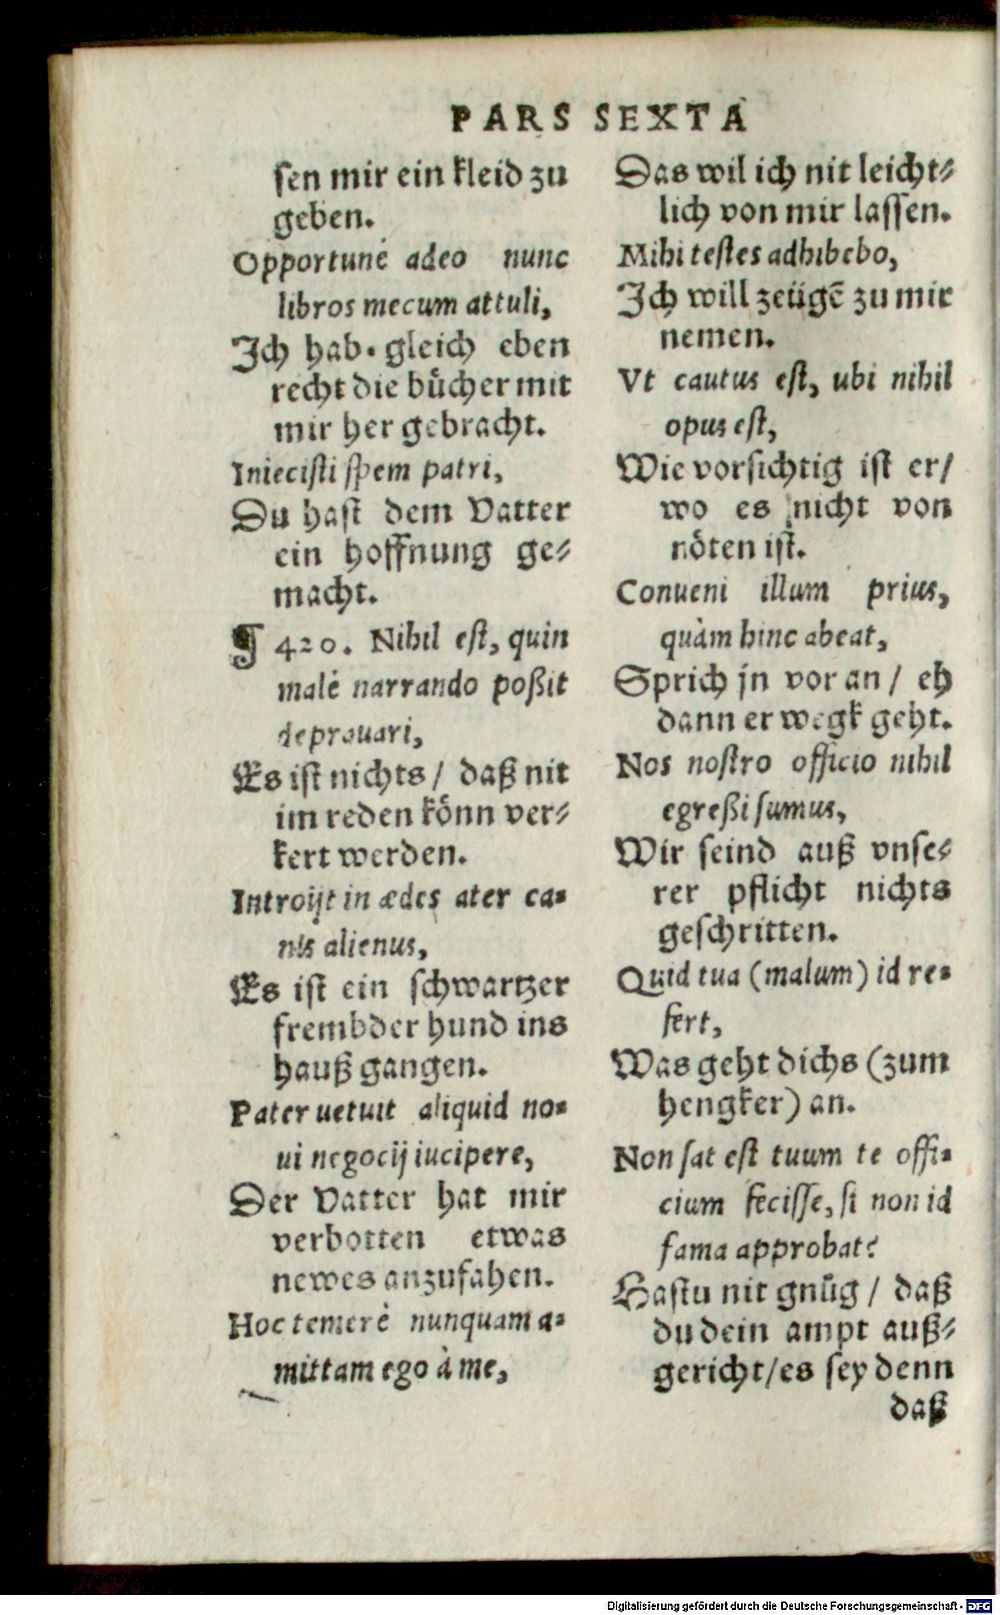 PARS SEXTA
sen mir ein kleid zu
geben.
Opportunè adeo nunc
libros mecum attuli,
Ich hab gleich eben
recht die bůcher mit
mir her gebracht.
Iniecisti spem patri,
Du hast dem Vatter
ein hoffnung ge⸗
macht.
¶ 420. Nihil est, quin
malè narrando poßit
deprauari,
Es ist nichts / daß nit
im reden kônn ver⸗
kert werden.
Introijt in ædes ater ca-
nis alienus,
Es ist ein schwartzer
frembder hund ins
hauß gangen.
Pater uetuit aliquid no-
ui negocij iucipere,
Der Vatter hat mir
verbotten etwas
newes anzufahen.
Hoc temerè nunquam a-
mittam ego à me,
Das wil ich nit leicht⸗
lich von mir lassen.
Mihi testes adhibebo,
Ich will zeügē zu mir
nemen.
Vt cautus est, ubi nihil
opus est,
Wie vorsichtig ist er/
wo es nicht von
nôten ist.
Conueni illum prius,
quàm hinc abeat,
Sprich jn vor an / eh
dann er wegk geht.
Nos nostro officio nihil
egreßi sumus,
Wir seind auß vnse⸗
rer pflicht nichts
geschritten.
Quid tua (malum) id re-
fert,
Was geht dichs (zum
hengker) an.
Non sat est tuum te offi-
cium fecisse, si non id
fama approbat?
Hastu nit gnůg / daß
du dein ampt auß⸗
gericht/es sey denn
daß
Digitalisierung gefördert durch die Deutsche Forschungsgemeinschaft - DFG